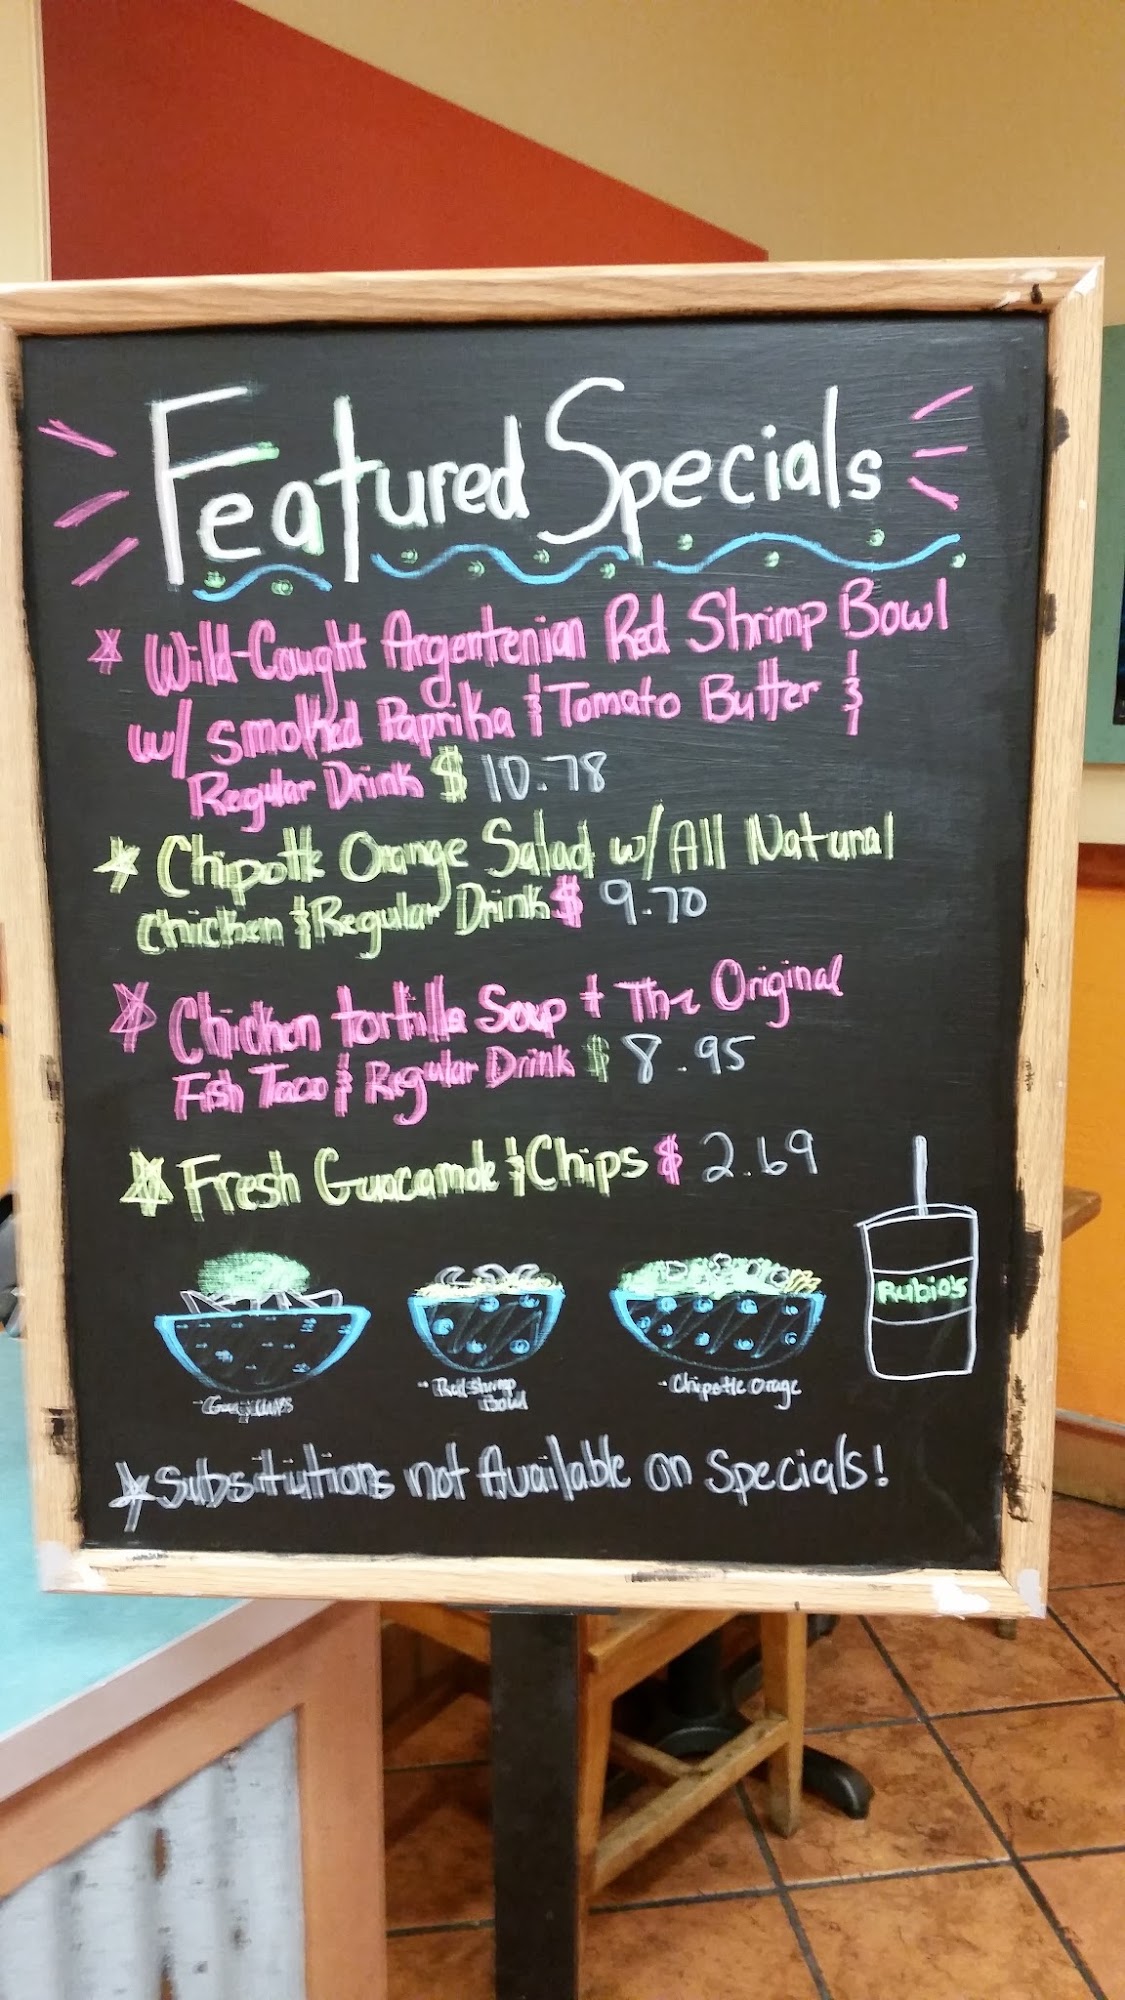 Featured Specials
* Wild-Caught Argentenian Red Shrimp Bowl
w/ smoked Paprika & Tomato Butter &
Regular Drink $ 10.78
* Chipotle Orange Salad w/ All Natural
Chicken & Regular Drink $ 9.70
* Chicken tortilla Soup + The Original
Fish Taco & Regular Drink $ 8.95
* Fresh Guacamole & Chips $ 2.69
Rubio's
- Guac chips
- Red shrimp
Bowl
- Chipotle orage
* Substitutions not Available on Specials!